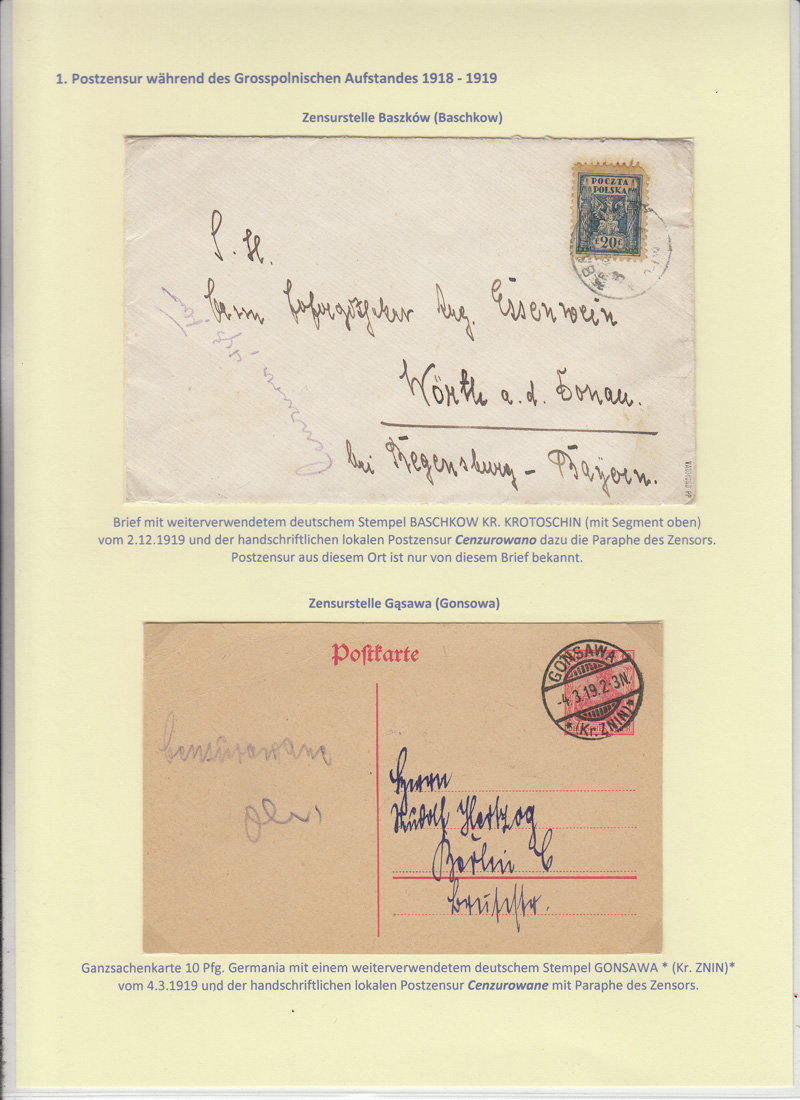 1. Postzensur während des Grosspolnischen Aufstandes 1918 - 1919
Zensurstelle Baszków (Baschkow)
POCZTA
POLSKA
20
S. H.
Herrn Hofapotheker Aug. Essenwein
Wörth a. d. Donau.
bei Regensburg – Bayern.
Brief mit weiterverwendetem deutschem Stempel BASCHKOW KR. KROTOSCHIN (mit Segment oben)
vom 2.12.1919 und der handschriftlichen lokalen Postzensur Cenzurowano dazu die Paraphe des Zensors.
Postzensur aus diesem Ort ist nur von diesem Brief bekannt.
Zensurstelle Gąsawa (Gonsowa)
Postkarte
GONSAWA
-4.3.19.2-3N.
* (Kr. ZNIN) *
Cenzurowane
Herrn
Rudolf Hertzog
Berlin C
Breitestr.
Ganzsachenkarte 10 Pfg. Germania mit einem weiterverwendetem deutschem Stempel GONSAWA * (Kr. ZNIN)*
vom 4.3.1919 und der handschriftlichen lokalen Postzensur Cenzurowane mit Paraphe des Zensors.